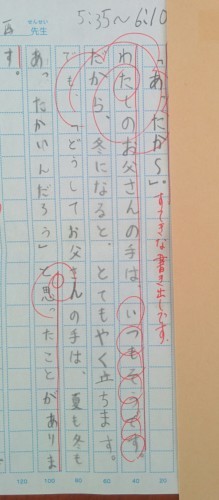 5:35～6:10
「あったか～い。」
すてきな書き出しです。
わたしのお父さんの手は、いつもそうです。
だから、冬になると、とてもやく立ちます。
でも、「どうしてお父さんの手は、夏も冬も
あったかいんだろう」と思ったことがありま
す。
先生
せんせい
20
40
60
80
100
120